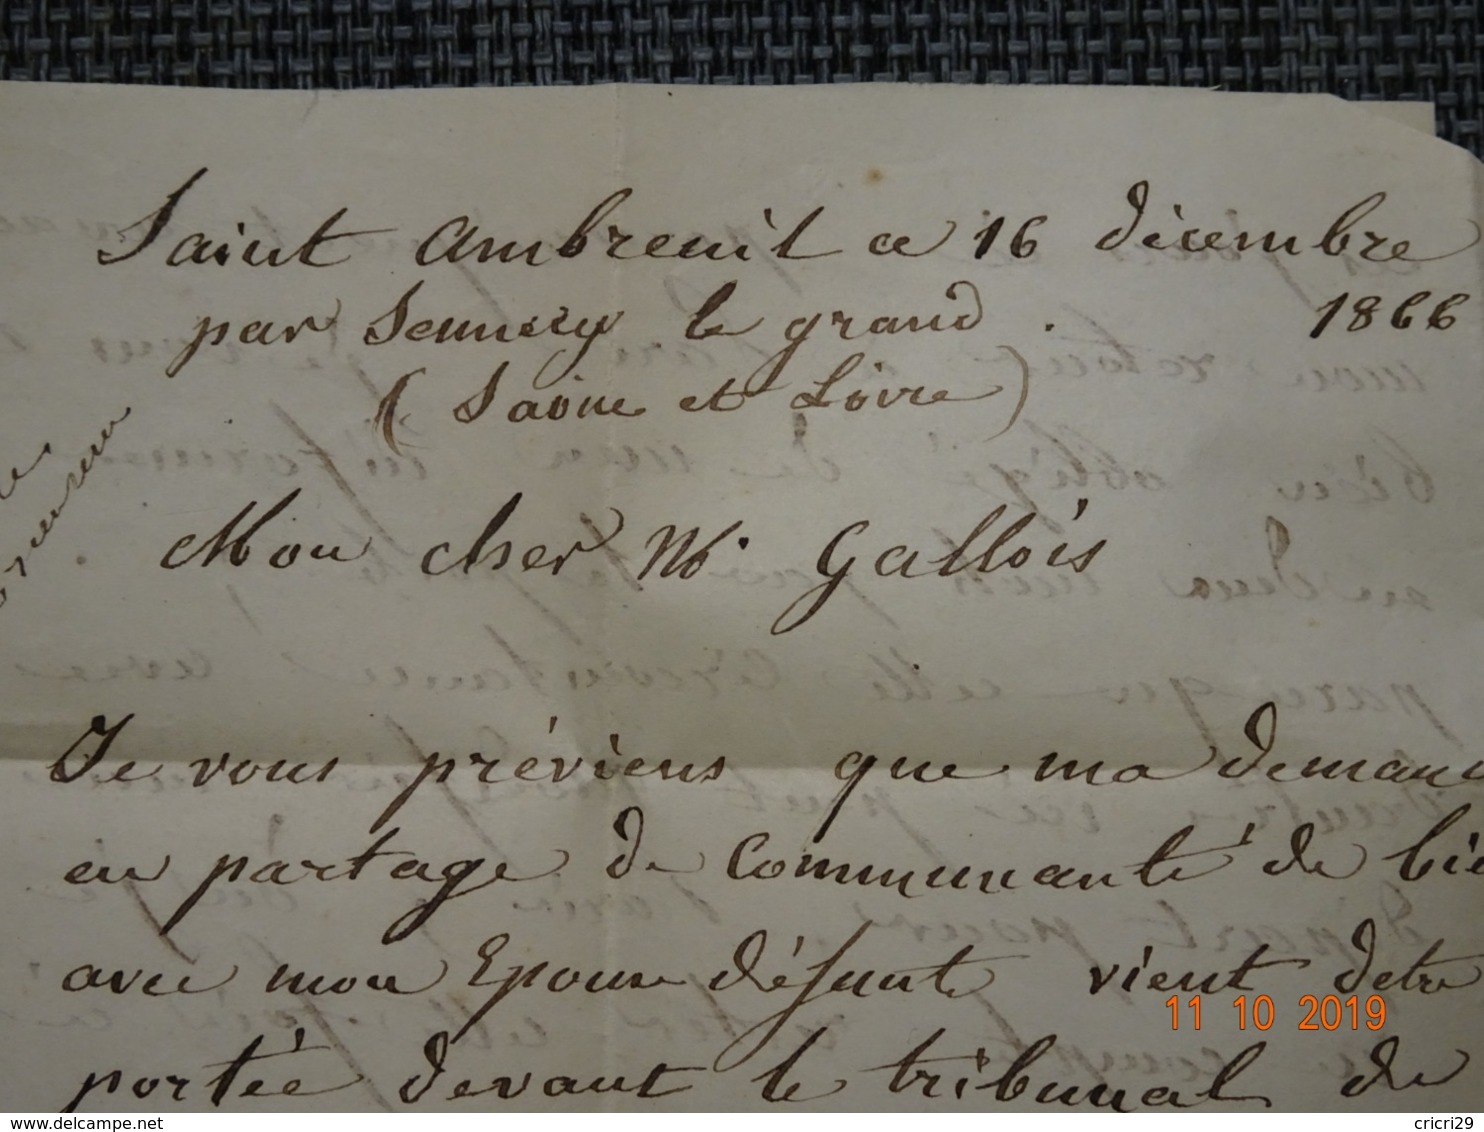 Saint Ambreuil ce 16 décembre
par Sennecy le grand. 1866
(Saone et Loire)
Mon cher Mr. Gallois
Je vous préviens que ma deman
en partage de communauté de bi
avec mon Epouse défunte vient detre
portée devant le tribunal de
11 10 2019
www.delcampe.net
cricri29